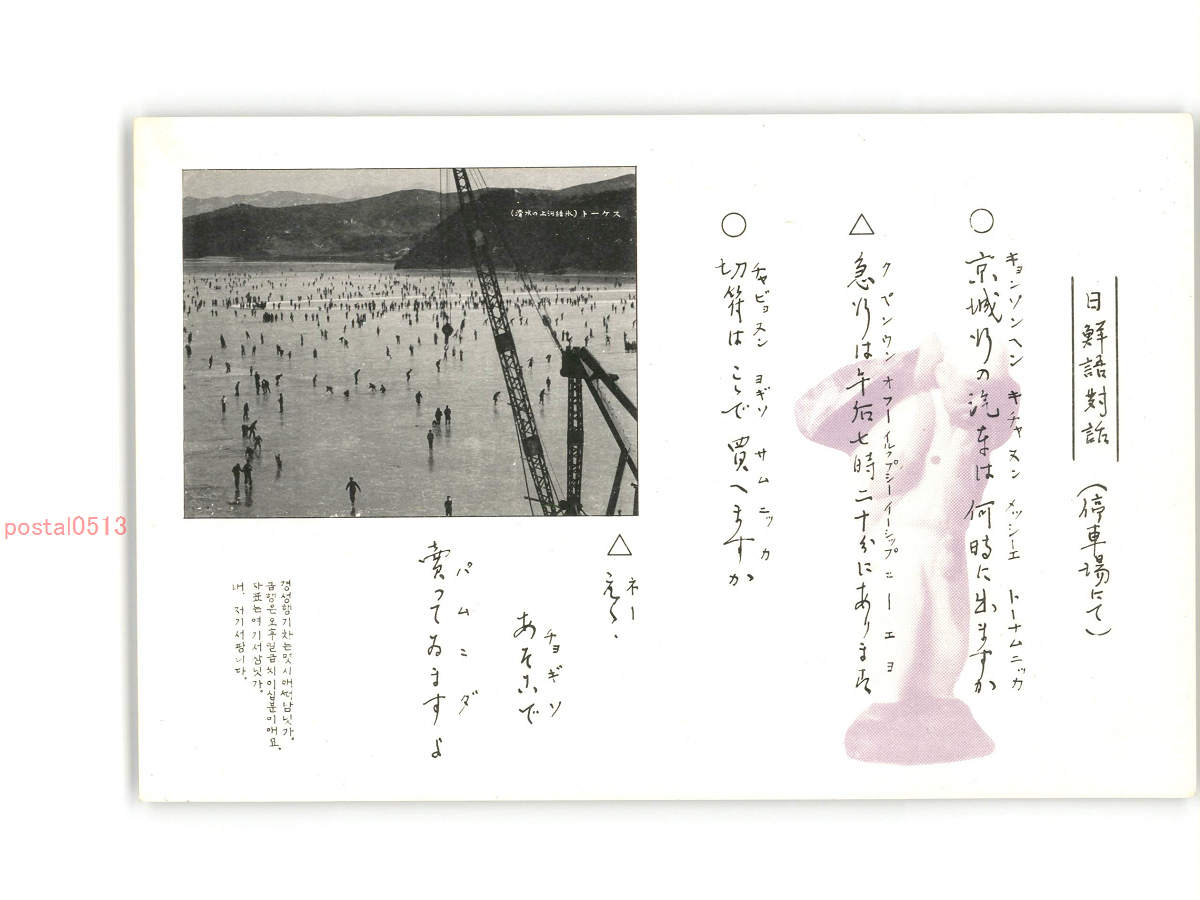 日鮮語對話
(停車場にて)
キョンソンヘン キチャヌン メッシーエ トーナムニッカ
○ 京城行の汽車は何時に出ますか
クペンウン オフー イルㇷ゚シー イーシップニーエヨ
△ 急行は午后七時二十分にあります
チャピョヌン ヨギソ サムニッカ
○ 切符はこゝで買へますか
ネー
△ えゝ、
チョギソ
あそこで
パムニダ
賣ってゐますよ
スケート(氷結河上の水滑)
경성행기차는멧시에떠남닛가.
급행은오후일곱시이십분이에요.
차표는여기서삼닛가.
네, 저기서팜니다.
postal0513